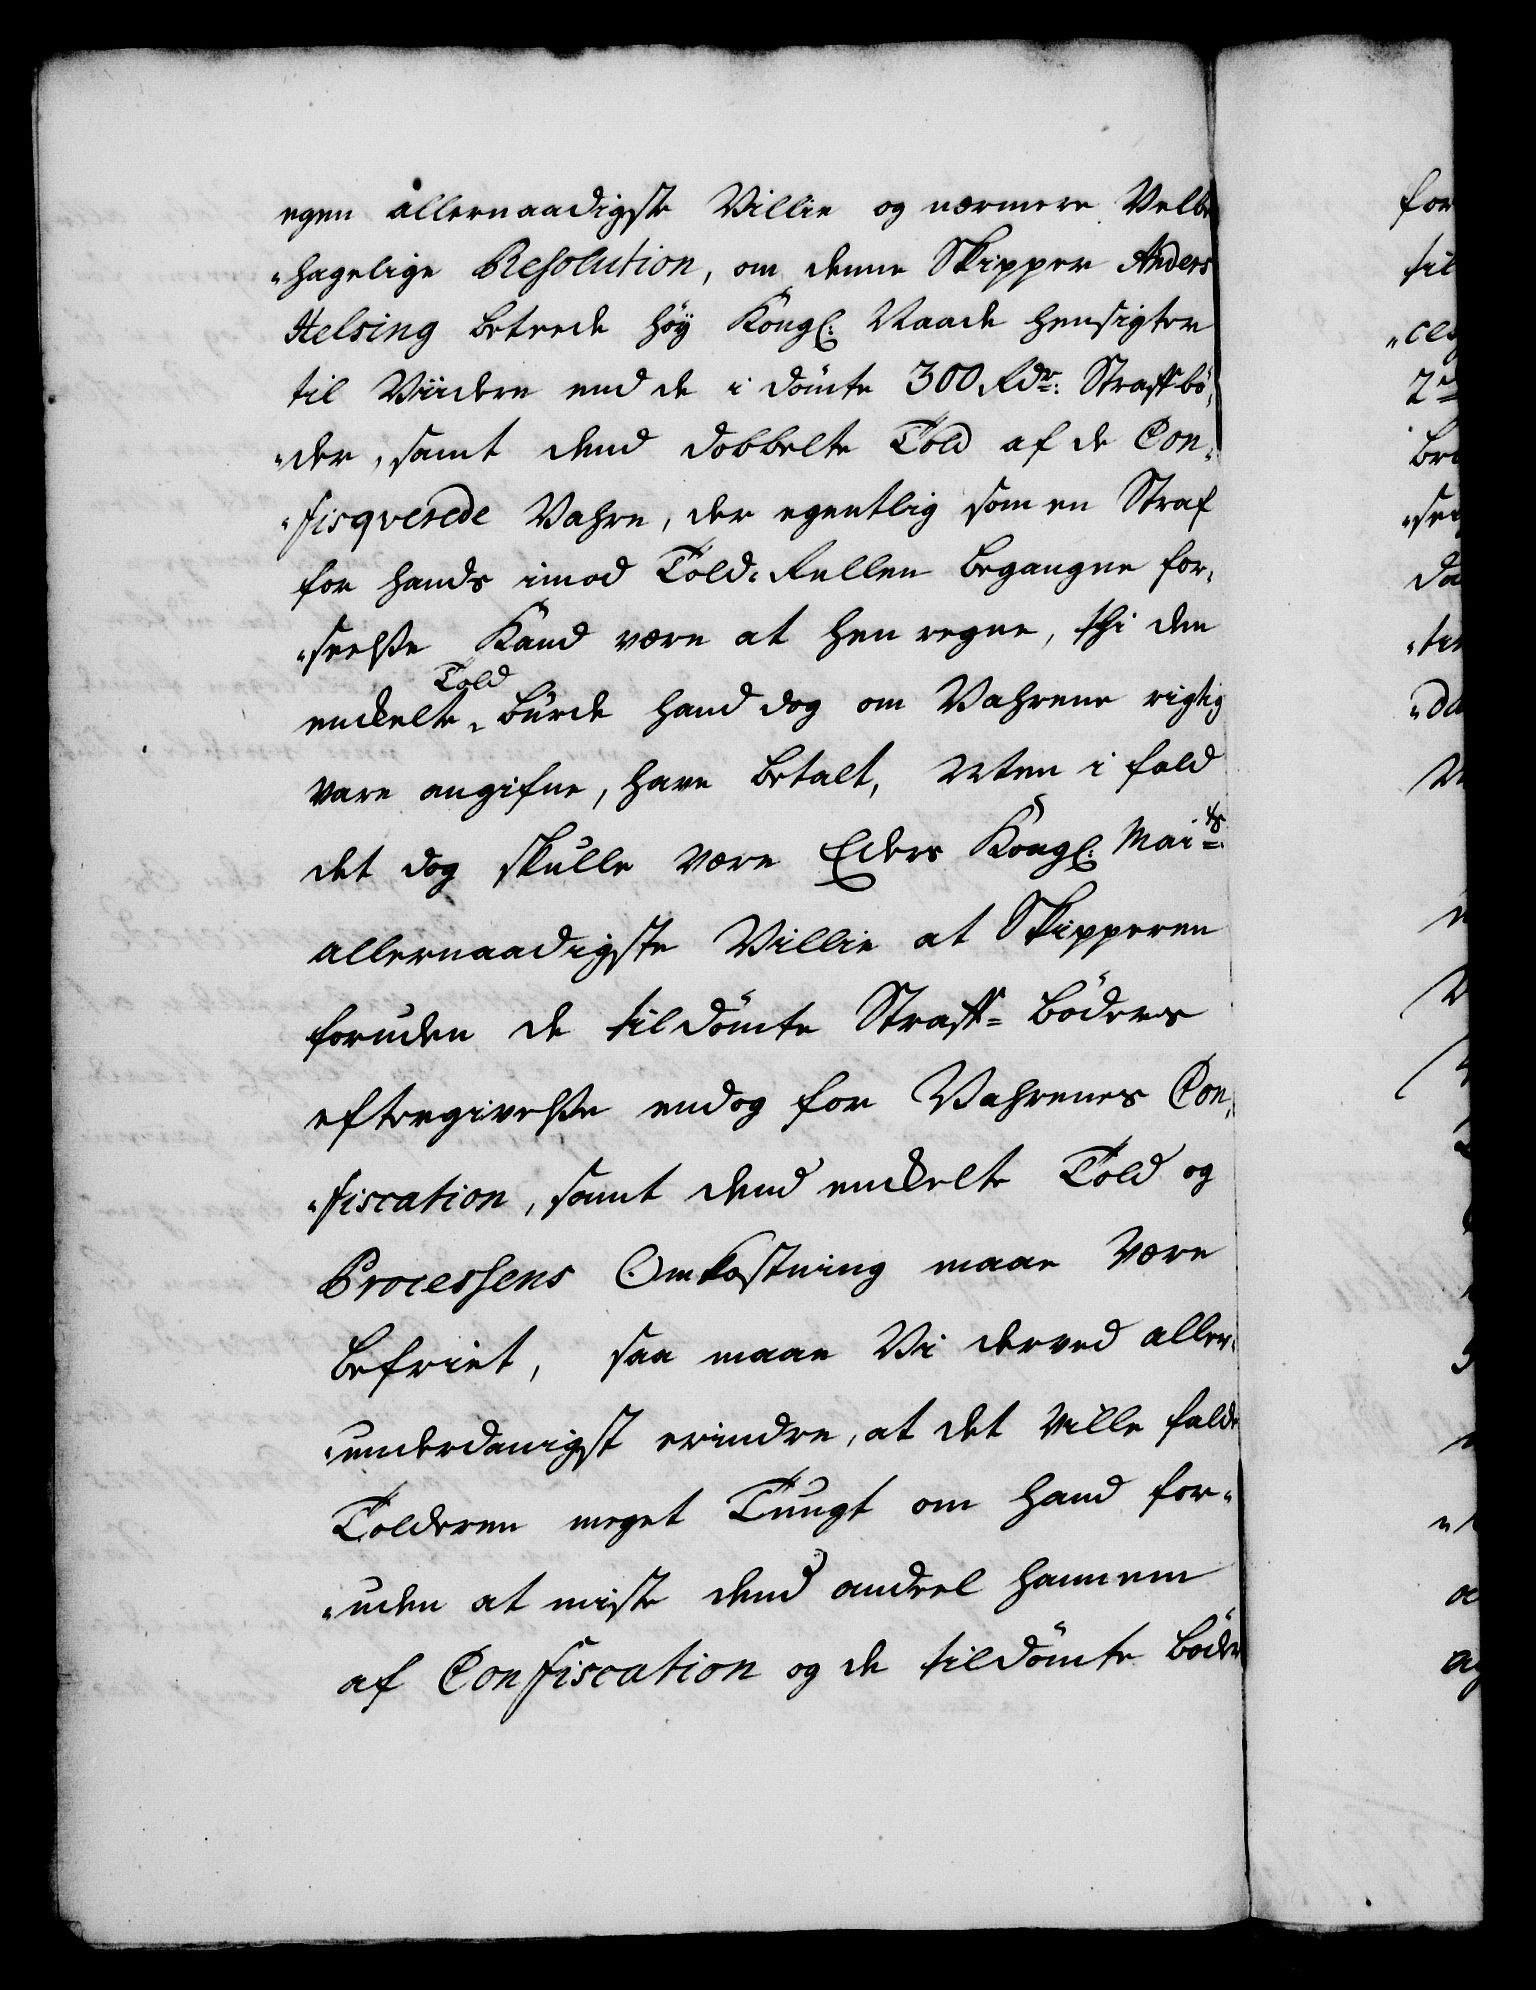 egen allernaadigste Villie og nærmere Velbe
"hagelige Resolution, om denne Skipper Anders
Helsing betræde høy Kongl: Naade hensigter
til Viidere end de i dömte 300 Rdr: Straffbö,
"der, samt dend dobbelte Told af de Con,
"fisqverede Vahre, der egentlig som en Straf
for hands imod Told-Rullen begangne for,
"seelße Kand være at hen regne, thi den
Told
enckelte burde hand dog om Vahrene rigtig
vare angifne, have betalt, Uten i fald
det dog skulle være Eders Kongl: Maits:
allernaadigste Villie at Skipperen
foruden de tildömte Straff- böders
eftergivelße endog for Vahrenes Con,
"fiscation, samt dend enckelte Told og
Processens Omkostning maae være
befriet, saa maae Vi derved aller,
"underdanigst erindre, at det ville falde
Tolderen meget Tungt om hand for-
"uden at miste dend andeel hannem
af Confiscation og de tildömte böder
for
til
"ces
2